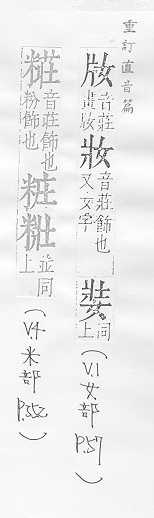 重訂直音篇
妝 音莊畫妝又文字
妝 音莊飾也
㢡 上同
(V.1女部 P.57)
糚 音莊飾也粉飾也
粧 粧 並同上
(V.4米部 P.552)